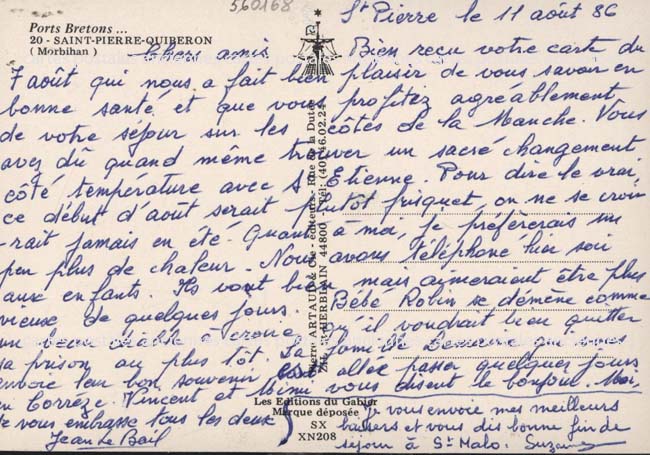 560168
St Pierre le 11 août 86
Ports Bretons ...
20 - SAINT-PIERRE-QUIBERON
( Morbihan )
Chers amis Bien reçu votre carte du
7 août qui nous a fait bien plaisir de vous savoir en
bonne santé et que vous profitez agréablement
de votre séjour sur les côtes de la Manche. Vous
avez dû quand même trouver un sacré changement
côté température avec St Etienne. Pour dire le vrai,
ce début d'août serait plutôt frisquet, on ne se croi-
-rait jamais en été. Quant à moi, je préférerais un
peu plus de chaleur. Nous avons téléphoné hier soir
aux enfants. Ils vont bien mais aimeraient être plus
vieux de quelques jours. Bébé Robin se démène comme
un beau diable à croire qu'il voudrait bien quitter
sa prison au plus tôt. La famille
allez passer quelques jours
envoie leur bon souvenir
en Corrèze. Vincent et Mimi vous disent le bonjour. Moi,
je vous embrasse tous les deux
Jean Le Bail
je vous envoie mes meilleurs
baisers et vous dis bonne fin de
séjour à St Malo. Suzanne
Pierre ARTAUD & Cie - éditeurs - Rue de la Dutée
Z.I. ST-HERBLAIN 44800 - Tél. (40) 46.02.24
Les Editions du Gabier
Marque déposée
SX
XN208